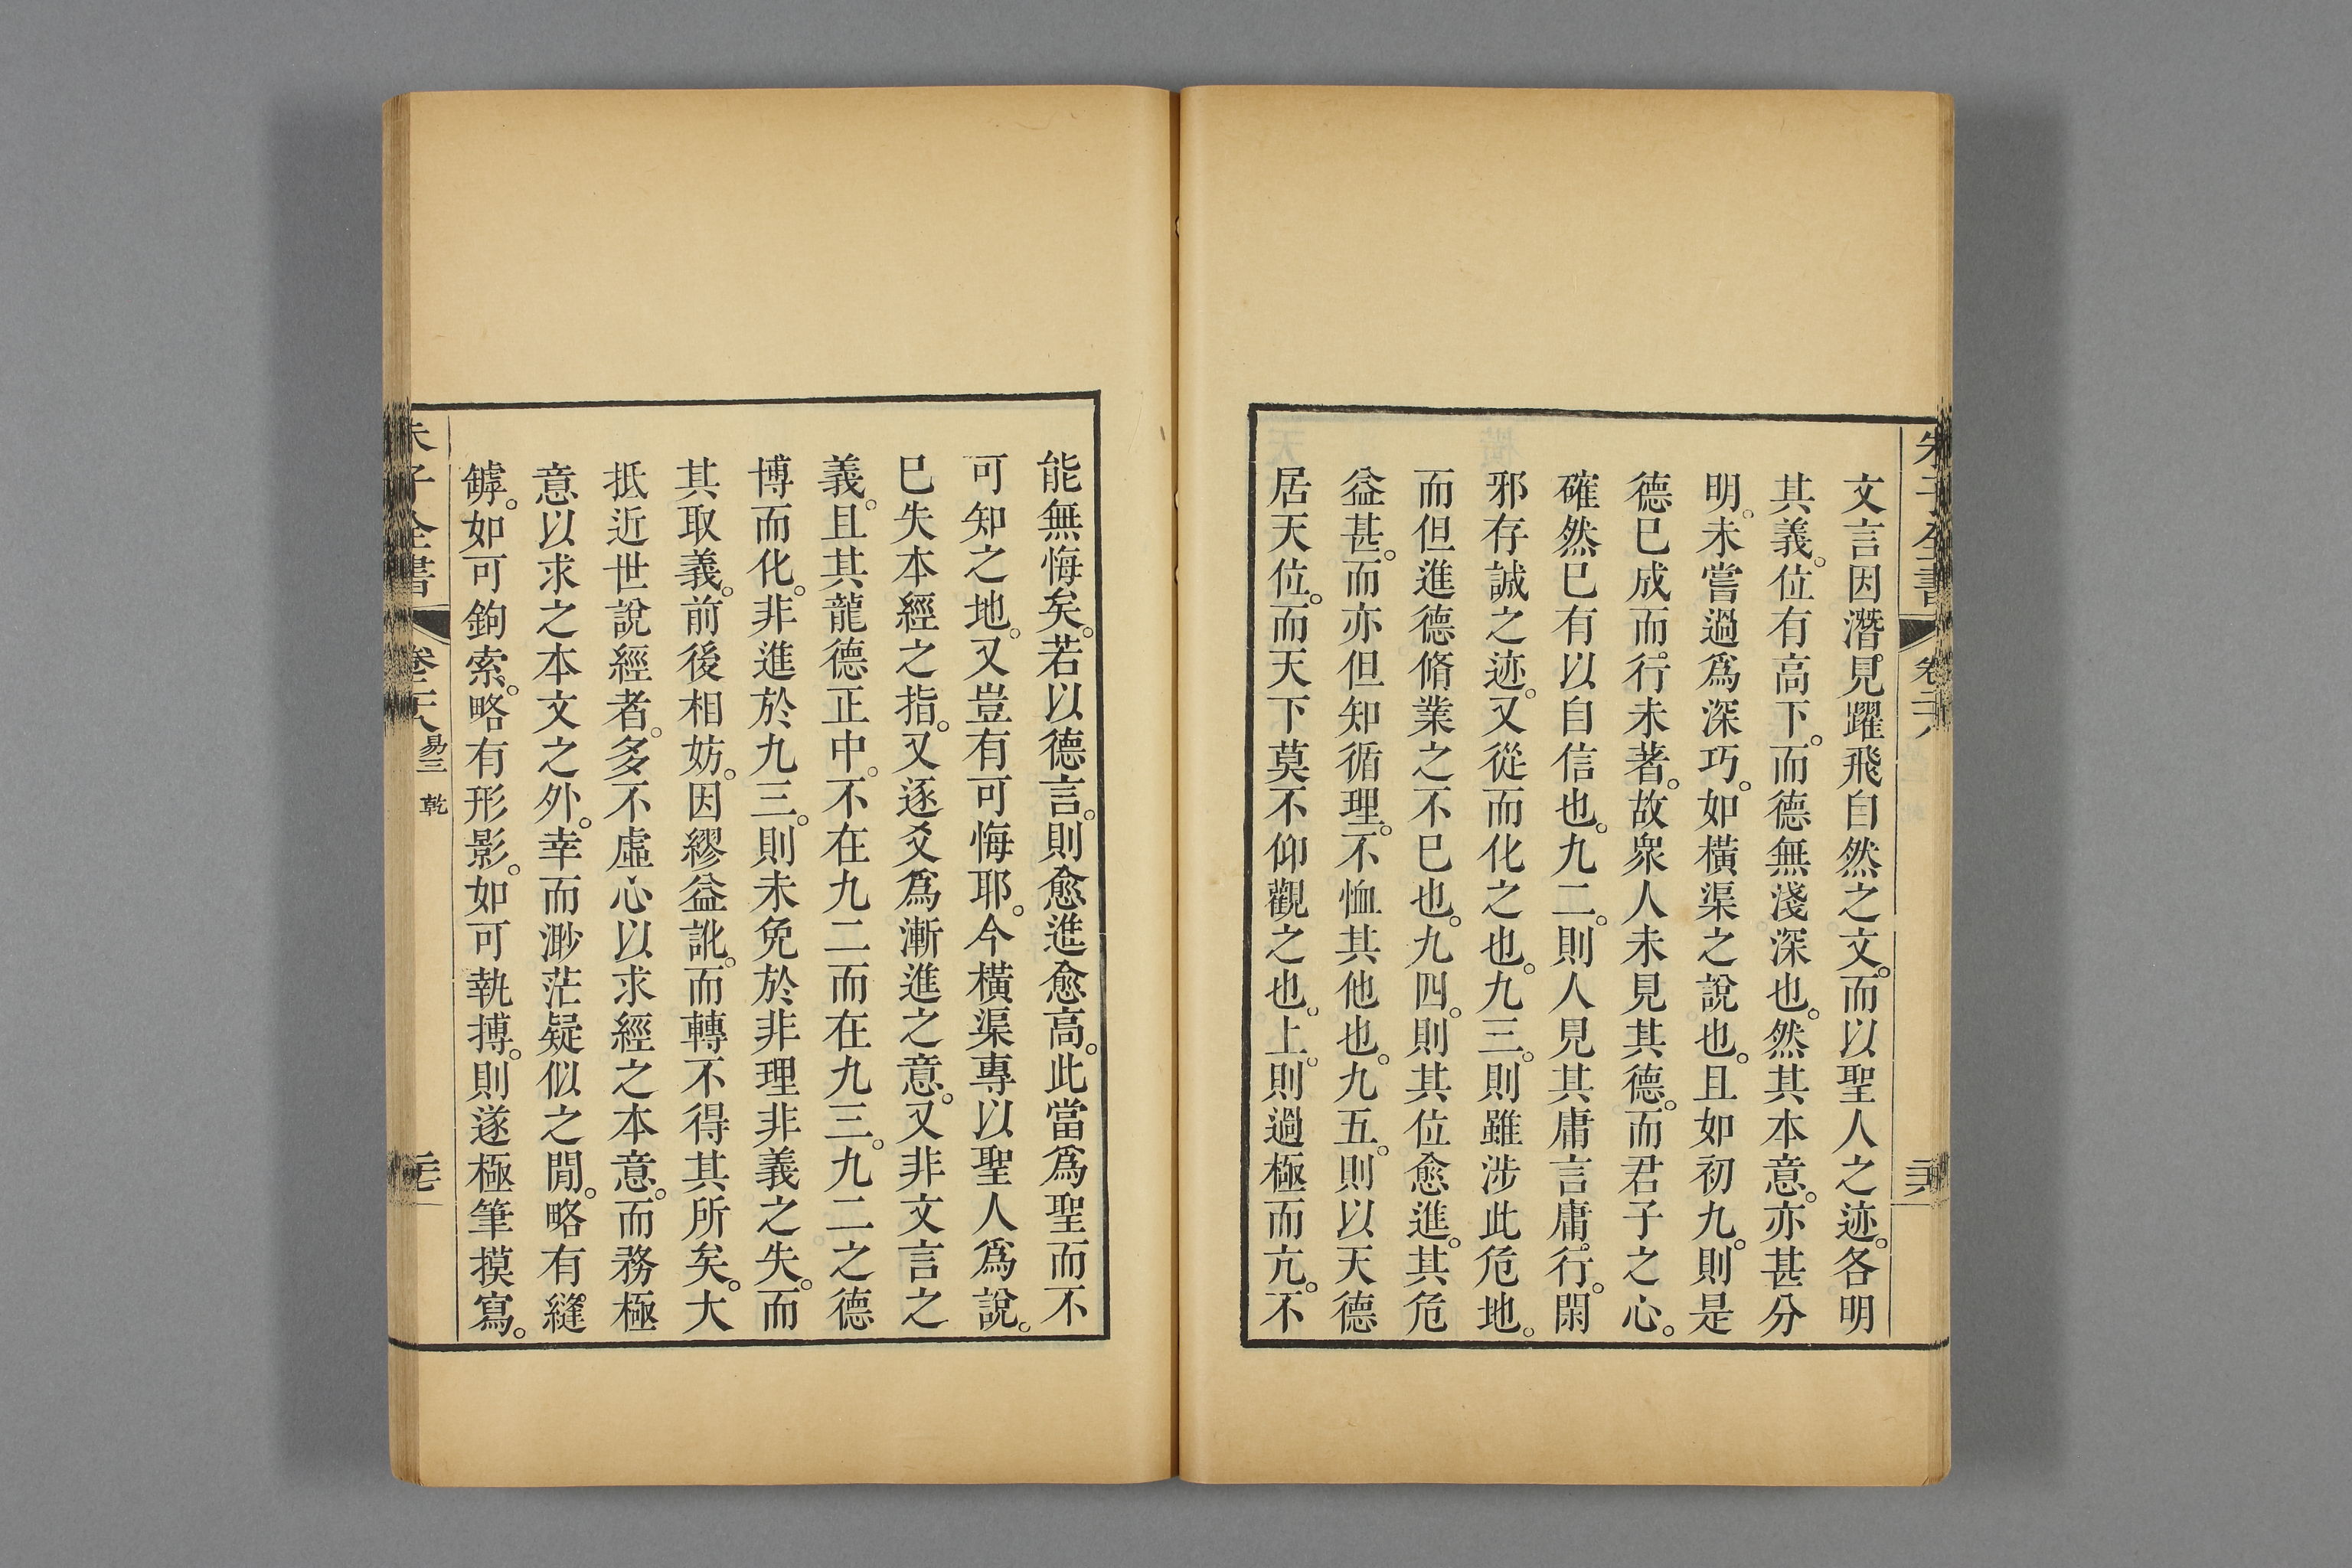 朱子全書
卷二十八
文言因潛見躍飛自然之文。而以聖人之迹。各明
其義。位有高下。而德無淺深也。然其本意。亦甚分
明。未嘗過爲深巧。如橫渠之說也。且如初九。則是
德已成而行未著。故衆人未見其德。而君子之心。
確然已有以自信也。九二。則人見其庸言庸行。閑
邪存誠之迹。又從而化之也。九三。則雖涉此危地。
而但進德脩業之不已也。九四。則其位愈進。其危
益甚。而亦但知循理。不恤其他也。九五。則以天德
居天位。而天下莫不仰觀之也。上。則過極而亢。不
能無悔矣。若以德言。則愈進愈高。此當爲聖而不
可知之地。又豈有可悔耶。今橫渠專以聖人爲說。
已失本經之指。又逐爻爲漸進之意。又非文言之
義。且其龍德正中。不在九二而在九三。九二之德
博而化。非進於九三。則未免於非理非義之失。而
其取義。前後相妨。因繆益訛。而轉不得其所矣。大
抵近世說經者。多不虛心以求經之本意。而務極
意以求之本文之外。幸而渺茫疑似之閒。略有縫
罅。如可鉤索。略有形影。如可執搏。則遂極筆摸寫。
朱子全書
卷二十八
易三 乾